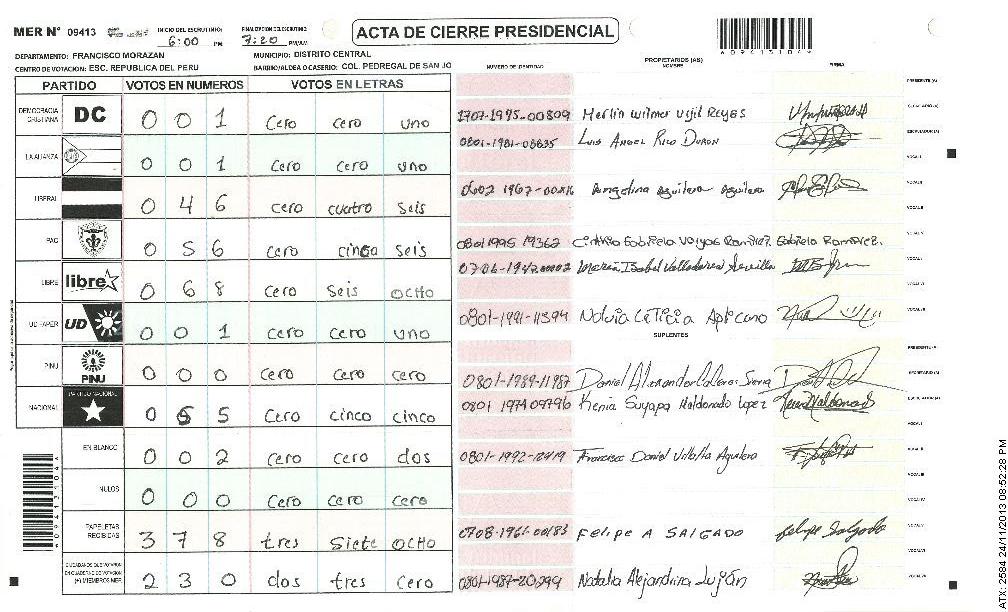 MER N° 09413 INICIO DEL ESCRUTINIO: 6:00 PM FINALIZACION DEL ESCRUTINIO: 7:20 PM/AM
ACTA DE CIERRE PRESIDENCIAL
DEPARTAMENTO: FRANCISCO MORAZAN MUNICIPIO: DISTRITO CENTRAL
CENTRO DE VOTACION: ESC. REPUBLICA DEL PERU BARRIO/ALDEA O CASERIO: COL. PEDREGAL DE SAN JO
NUMERO DE IDENTIDAD PROPIETARIOS (AS) NOMBRE FIRMA
PARTIDO VOTOS EN NUMEROS VOTOS EN LETRAS
DEMOCRACIA CRISTIANA DC 0 0 1 cero cero uno
1707-1995-00809 Merlin Wilmer Vijil Reyes
LA ALIANZA 0 0 1 cero cero uno
Luis Angel Rico Duron
LIBERAL 0 4 6 cero cuatro seis
Angelina Aguilera Aguilera
PAC 0 5 6 cero cinco seis
0801 1995 19362
LIBRE libre 0 6 8 cero seis ocho
Maria Isabel Valladares Sevilla
UD FAPER UD 0 0 1 cero cero uno
0801-1991-11394 Nolvia Leticia Aplicano
SUPLENTES
PINU PINU 0 0 0 cero cero cero
0801-1989-11987 Daniel Alexander
NACIONAL PARTIDO NACIONAL 0 5 5 cero cinco cinco
0801 1974 09796 Kenia Suyapa Maldonado Lopez
EN BLANCO 0 0 2 cero cero dos
Francisco Daniel Villalta Aguilera
NULOS 0 0 0 cero cero cero
PAPELETAS RECIBIDAS 3 7 8 tres siete ocho
0708-1961-00183 Felipe A SALGADO Felipe Salgado
CIUDADANOS QUE VOTARON EN CUADERNO DE VOTACION (+) MIEMBROS MER 2 3 0 dos tres cero
0801-1987-20299 Natalia Alejandrina Luján
ATX: 2584 24/11/2013 08:52:28 PM